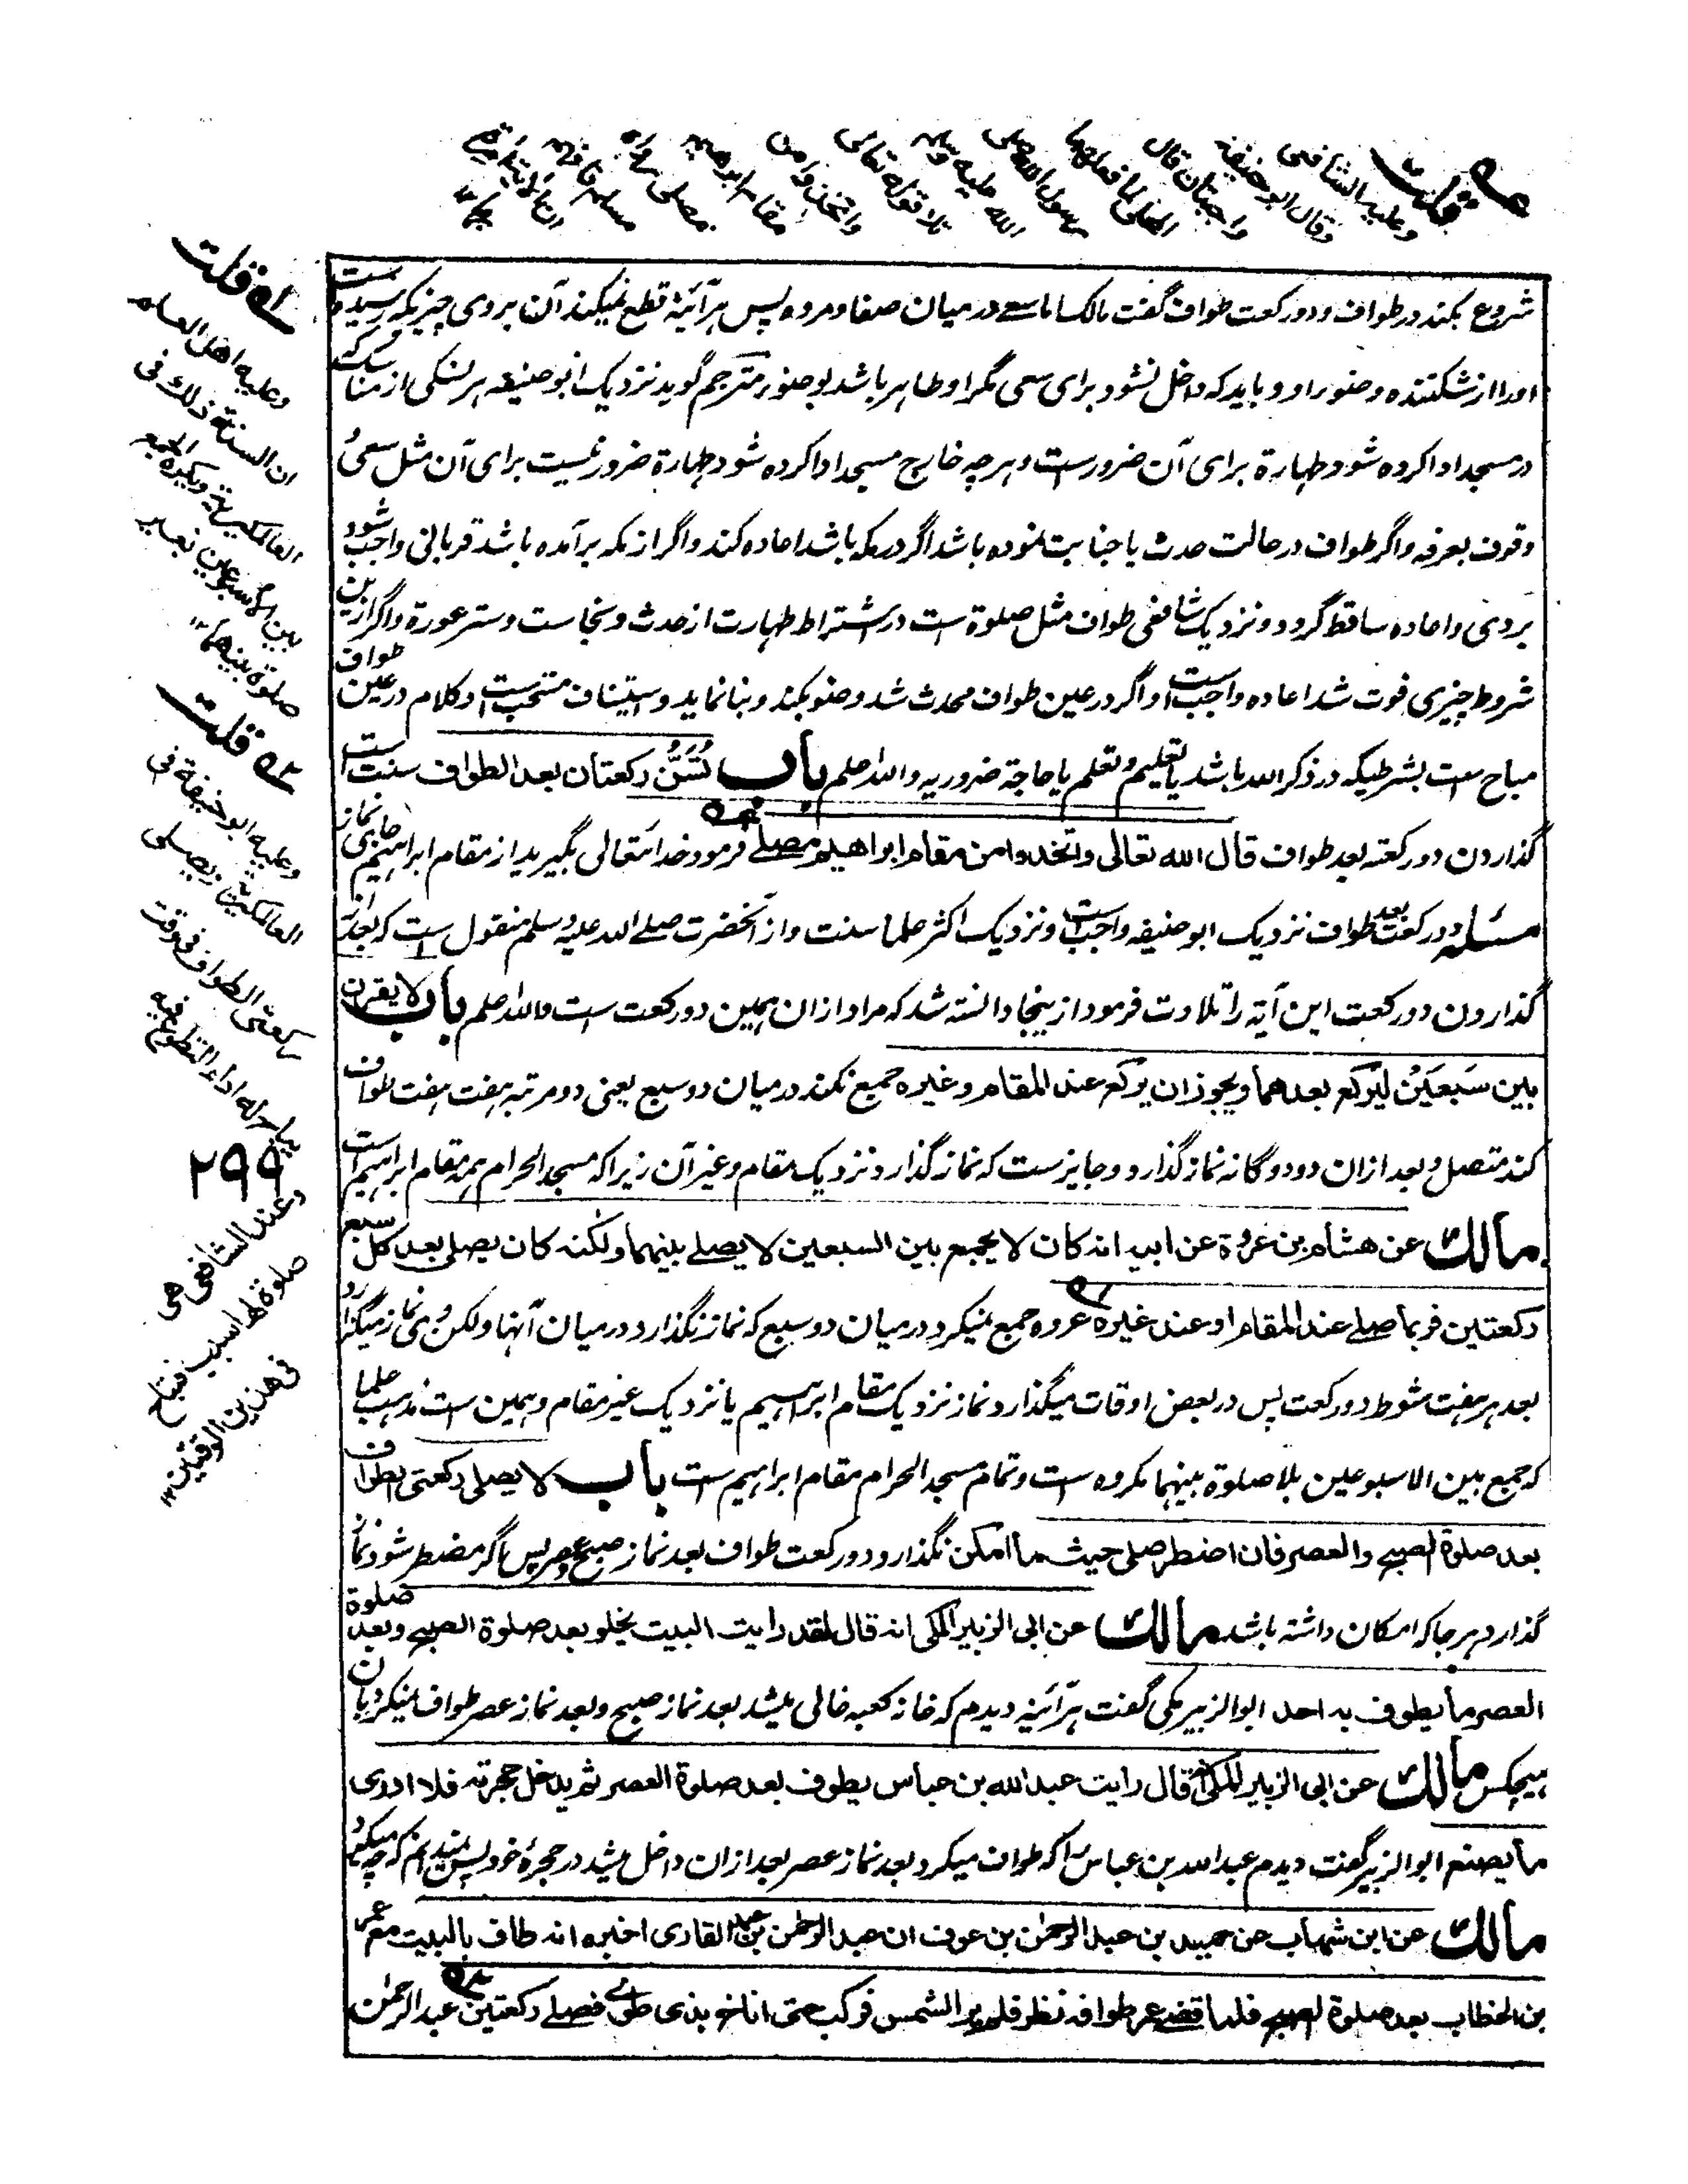 قلت
وعليه الشافعي
وقال ابو حنيفة
واجبتان قال
المحلى لما فعلهما
رسول الله صلى
الله عليه وسلم
تلا قوله تعالى
واتخذوا من
مقام ابراهيم
مصلى
شروع بکند در طواف و دو رکعت طواف گفت مالک اما سعی در میان صفا و مروه پس هرآئینه قطع نمیکند آن بروی چیزیکه رسیده است
اورا از شکننده وضور او و باید که داخل نشود برای سعی مگر او طاهر باشد بوضو مترجم گوید نزدیک ابو حنیفه هر نسکی از مناسک که
در مسجد ادا کرده شود طهارة برای آن ضرورست و هر چه خارج مسجد ادا کرده شود طهارة ضرور نیست برای آن مثل سعی و
وقوف بعرفه و اگر طواف در حالت حدث یا جنابت نموده باشد اگر در مکه باشد اعاده کند و اگر از مکه برآمده باشد قربانی واجب شود
بروی و اعاده ساقط گردد و نزدیک شافعی طواف مثل صلوة است در اشتراط طهارت از حدث و نجاست و ستر عورة و اگر ازین
شروط چیزی فوت شد اعاده واجب است و اگر در عین طواف محدث شد وضو بکند و بنا نماید و استیناف مستحب است و کلام در عین طواف
مباح ست بشرطیکه در ذکر الله باشد یا تعلیم و تعلم یا حاجة ضروریه والله اعلم باب تُسَنُّ ركعتان بعد الطواف سنت است
گذاردن دو رکعته بعد طواف قال الله تعالى واتخذوا من مقام ابراهيم مصلے فرمود خدایتعالی بگیرید از مقام ابراهیم جای نماز
مسئله دو رکعت بعد طواف نزدیک ابو حنیفه واجب است و نزدیک اکثر علما سنت و از آنحضرت صلے الله علیه وسلم منقول است که بعد از
گذاردن دو رکعت این آیة را تلاوت فرمود از ینجا دانسته شد که مراد از ان همین دو رکعت ست والله اعلم باب لا يقرن
بين سَبعَين ليركع بعدهما ويجوز ان يركع عند المقام وغيره جمع نکند در میان دو سبع یعنی دو مرتبه هفت هفت طواف
کند متصل و بعد ازان دو دوگانه نماز گذارد و جایز ست که نماز گذارد نزدیک مقام و غیر آن زیرا که مسجد الحرام همه مقام ابراهیم است
مالك عن هشام بن عروة عن ابيه انه كان لا يجمع بين السبعين لا يصلے بينهما ولكنه كان يصلى بعد كل سبع
ركعتين فربما صلے عند المقام او عند غيره عروه جمع نمیکرد در میان دو سبع که نماز نگذارد در میان آنها ولکن وی نماز میگذارد
بعد هر هفت شوط دو رکعت پس در بعض اوقات میگذارد نماز نزدیک مقام ابراهیم یا نزدیک غیر مقام و همین ست مذهب علما
که جمع بین الاسبوعین بلا صلوة بینهما مکروه است و تمام مسجد الحرام مقام ابراهیم ست باب لا يصلى ركعتى الطواف
بعد صلوة الصبح والعصر فان اضطر صلى حيث ما امكن نگذارد دو رکعت طواف بعد نماز صبح و عصر پس اگر مضطر شود نماز
گذارد هر جا که امکان داشته باشد مالك عن ابى الزبير المكى انه قال لقد رايت البيت يخلو بعد صلوة الصبح وبعد صلوة
العصر ما يطوف به احد ابو الزبیر مکی گفت هرآئینه دیدم که خانه کعبه خالی میشد بعد نماز صبح و بعد نماز عصر طواف نمیکرد بآن
هیچکس مالك عن ابى الزبير المكى انه قال رايت عبد الله بن عباس يطوف بعد صلوة العصر ثم يدخل حجرته فلا ادرى
ما يصنع ابو الزبیر گفت دیدم عبد الله بن عباس را که طواف میکرد بعد نماز عصر بعد ازان داخل میشد در حجرهٔ خود پس نمیدانم که چه میکرد
مالك عن ابن شهاب عن حميد بن عبد الرحمن بن عوف ان عبد الرحمن بن عبد القارى اخبره انه طاف بالبيت مع عمر
بن الخطاب بعد صلوة الصبح فلما قضے عمر طوافه نظر فلم ير الشمس فركب حتى اناخ بذى طوے فصلے ركعتين عبد الرحمن
له قلت
وعليه اهل العلم
ان السنة ذلك فى
العالمكيرية ويكره الجمع
بين الاسبوعين بغير
صلوة بينهما ۱۲
قلت
وعليه ابو حنيفة فى
العالمكيرية يصلى
ركعتى الطواف فى وقت
يباح له اداء التطوع فيه
۲۹۹
وعند الشافعى هى
صلوة لها سبب فتباح
فى هذين الوقتين ۱۲